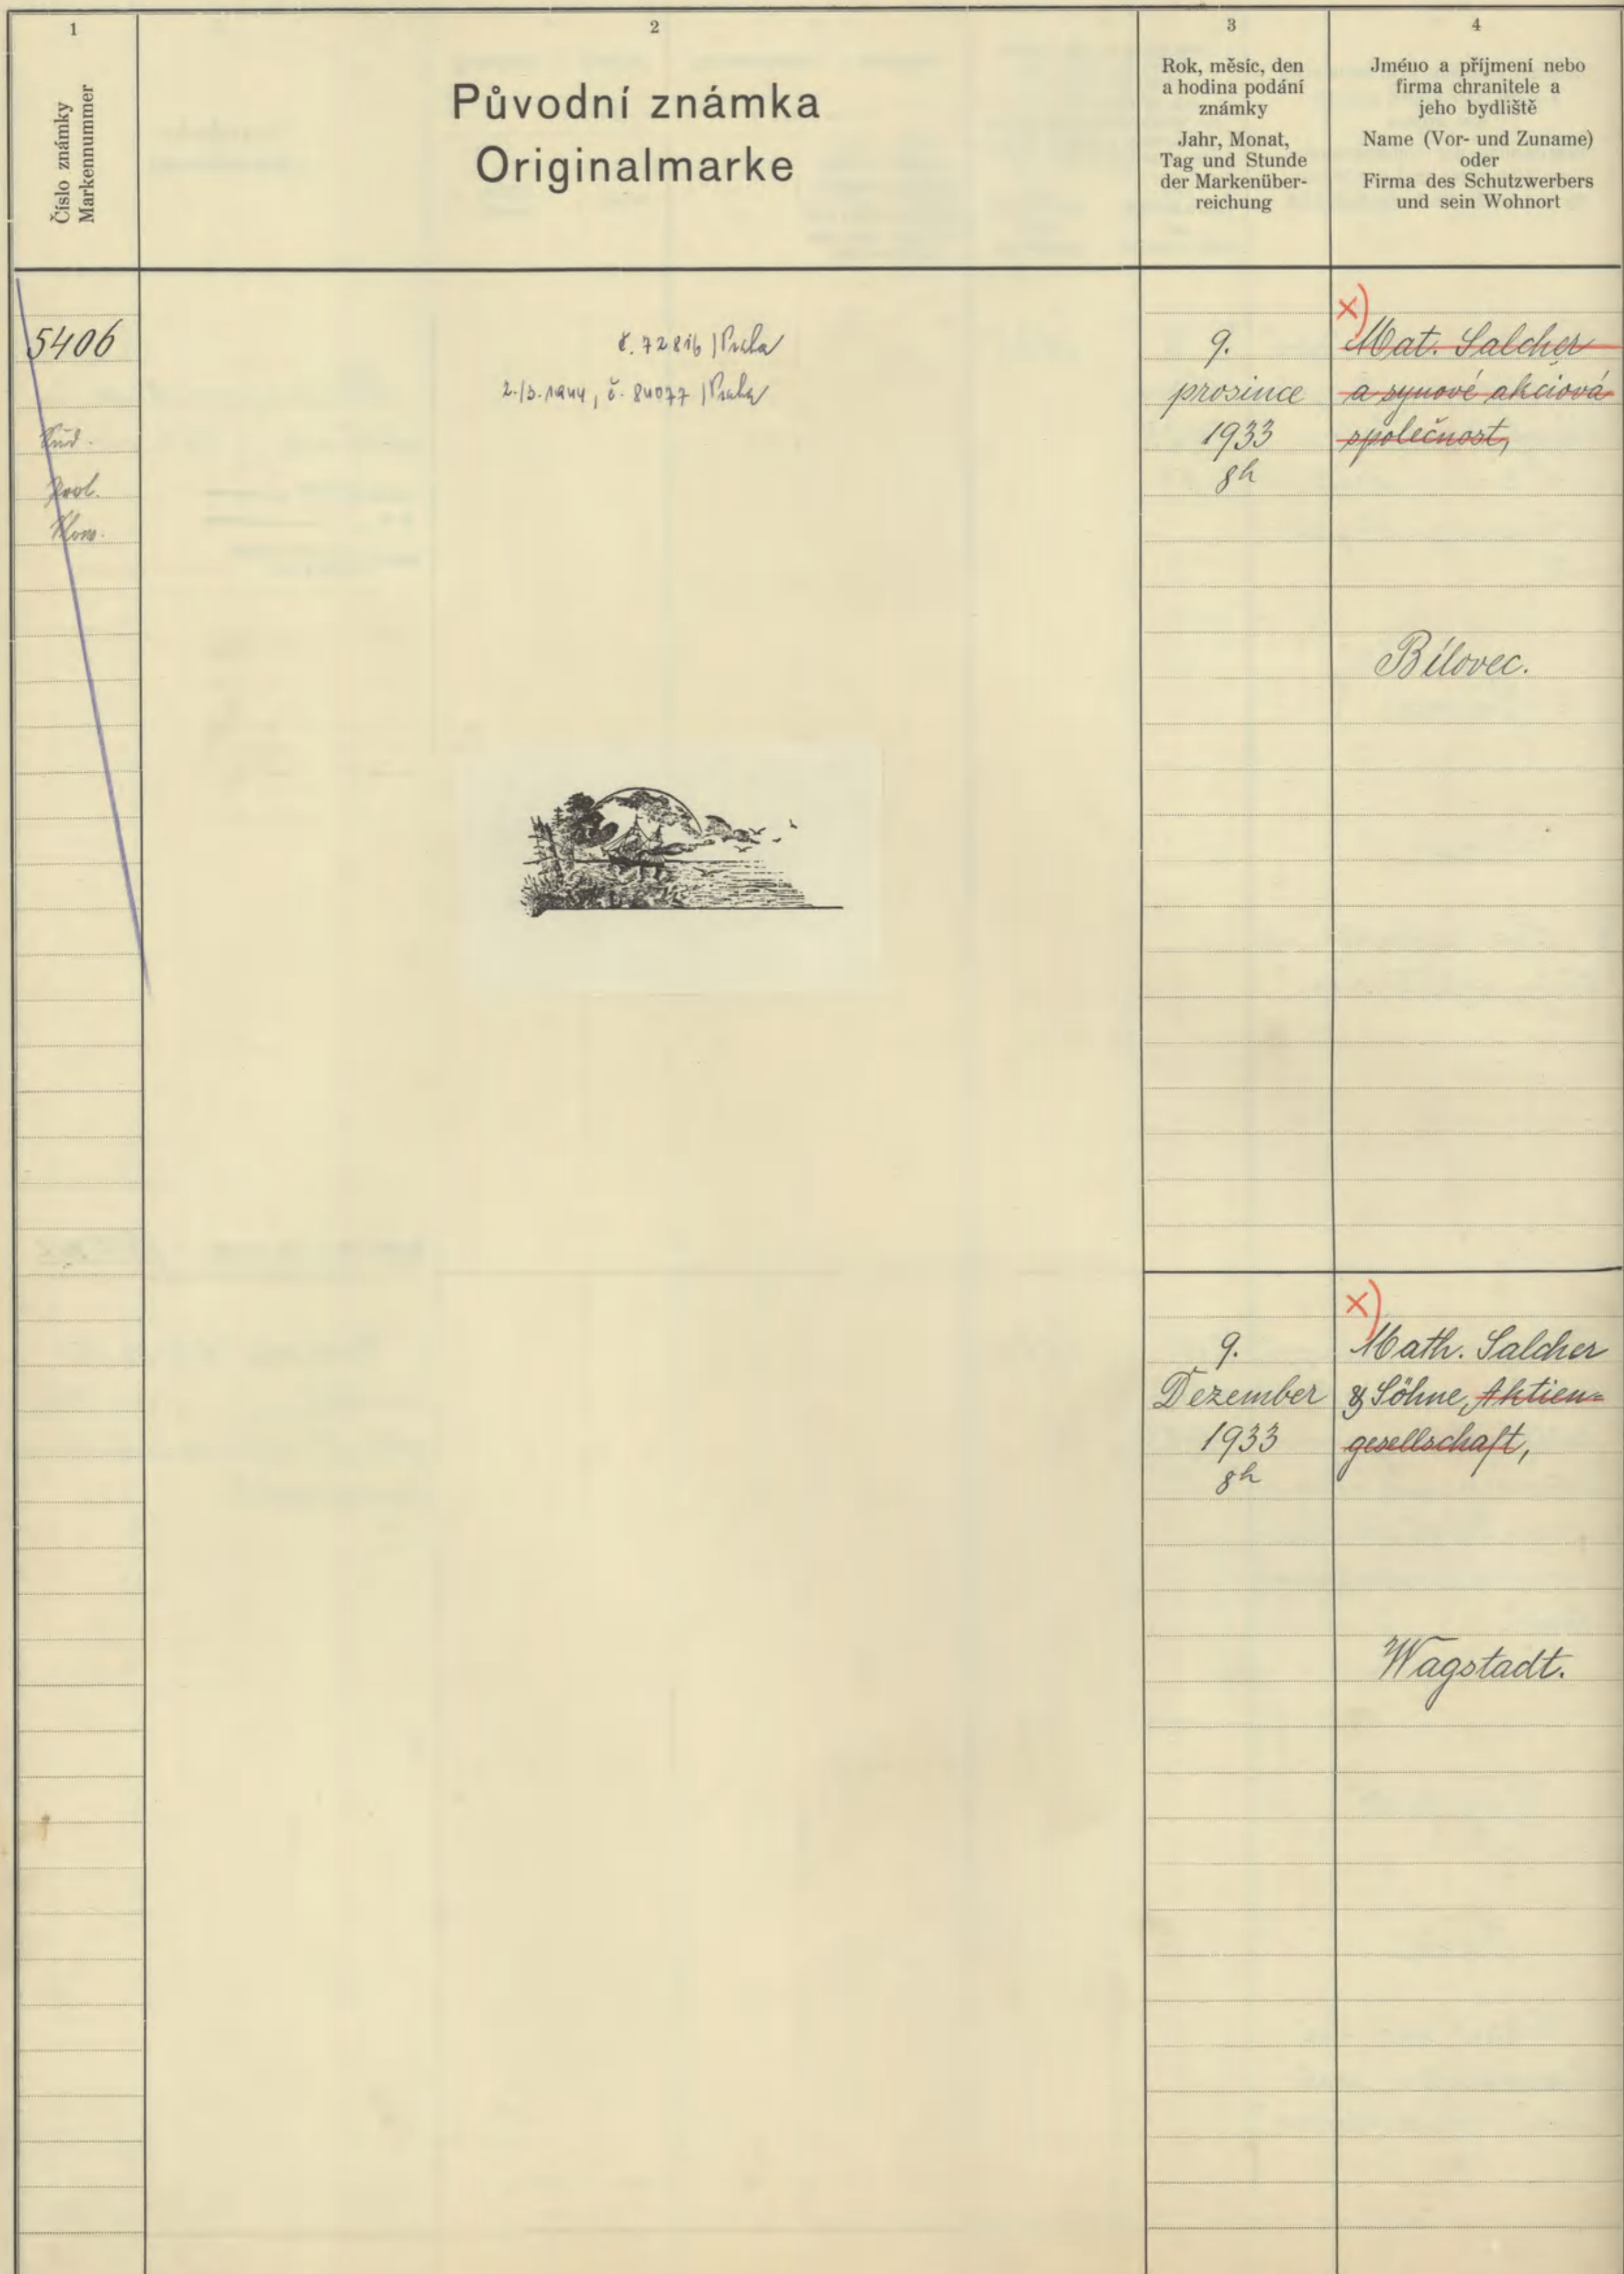 1
Číslo známky
Markennummer
2
Původní známka
Originalmarke
3
Rok, měsíc, den
a hodina podání
známky
Jahr, Monat,
Tag und Stunde
der Markenüber-
reichung
4
Jméno a příjmení nebo
firma chranitele a
jeho bydliště
Name (Vor- und Zuname)
oder
Firma des Schutzwerbers
und sein Wohnort
5406
č. 72816 | Praha
č. 84077 | Praha
9.
prosince
1933
8h
x)
Mat. Salcher
a synové akciová
společnost,
Bílovec.
9.
Dezember
1933
8h
x)
Math. Salcher
& Söhne Aktien=
gesellschaft,
Wagstadt.